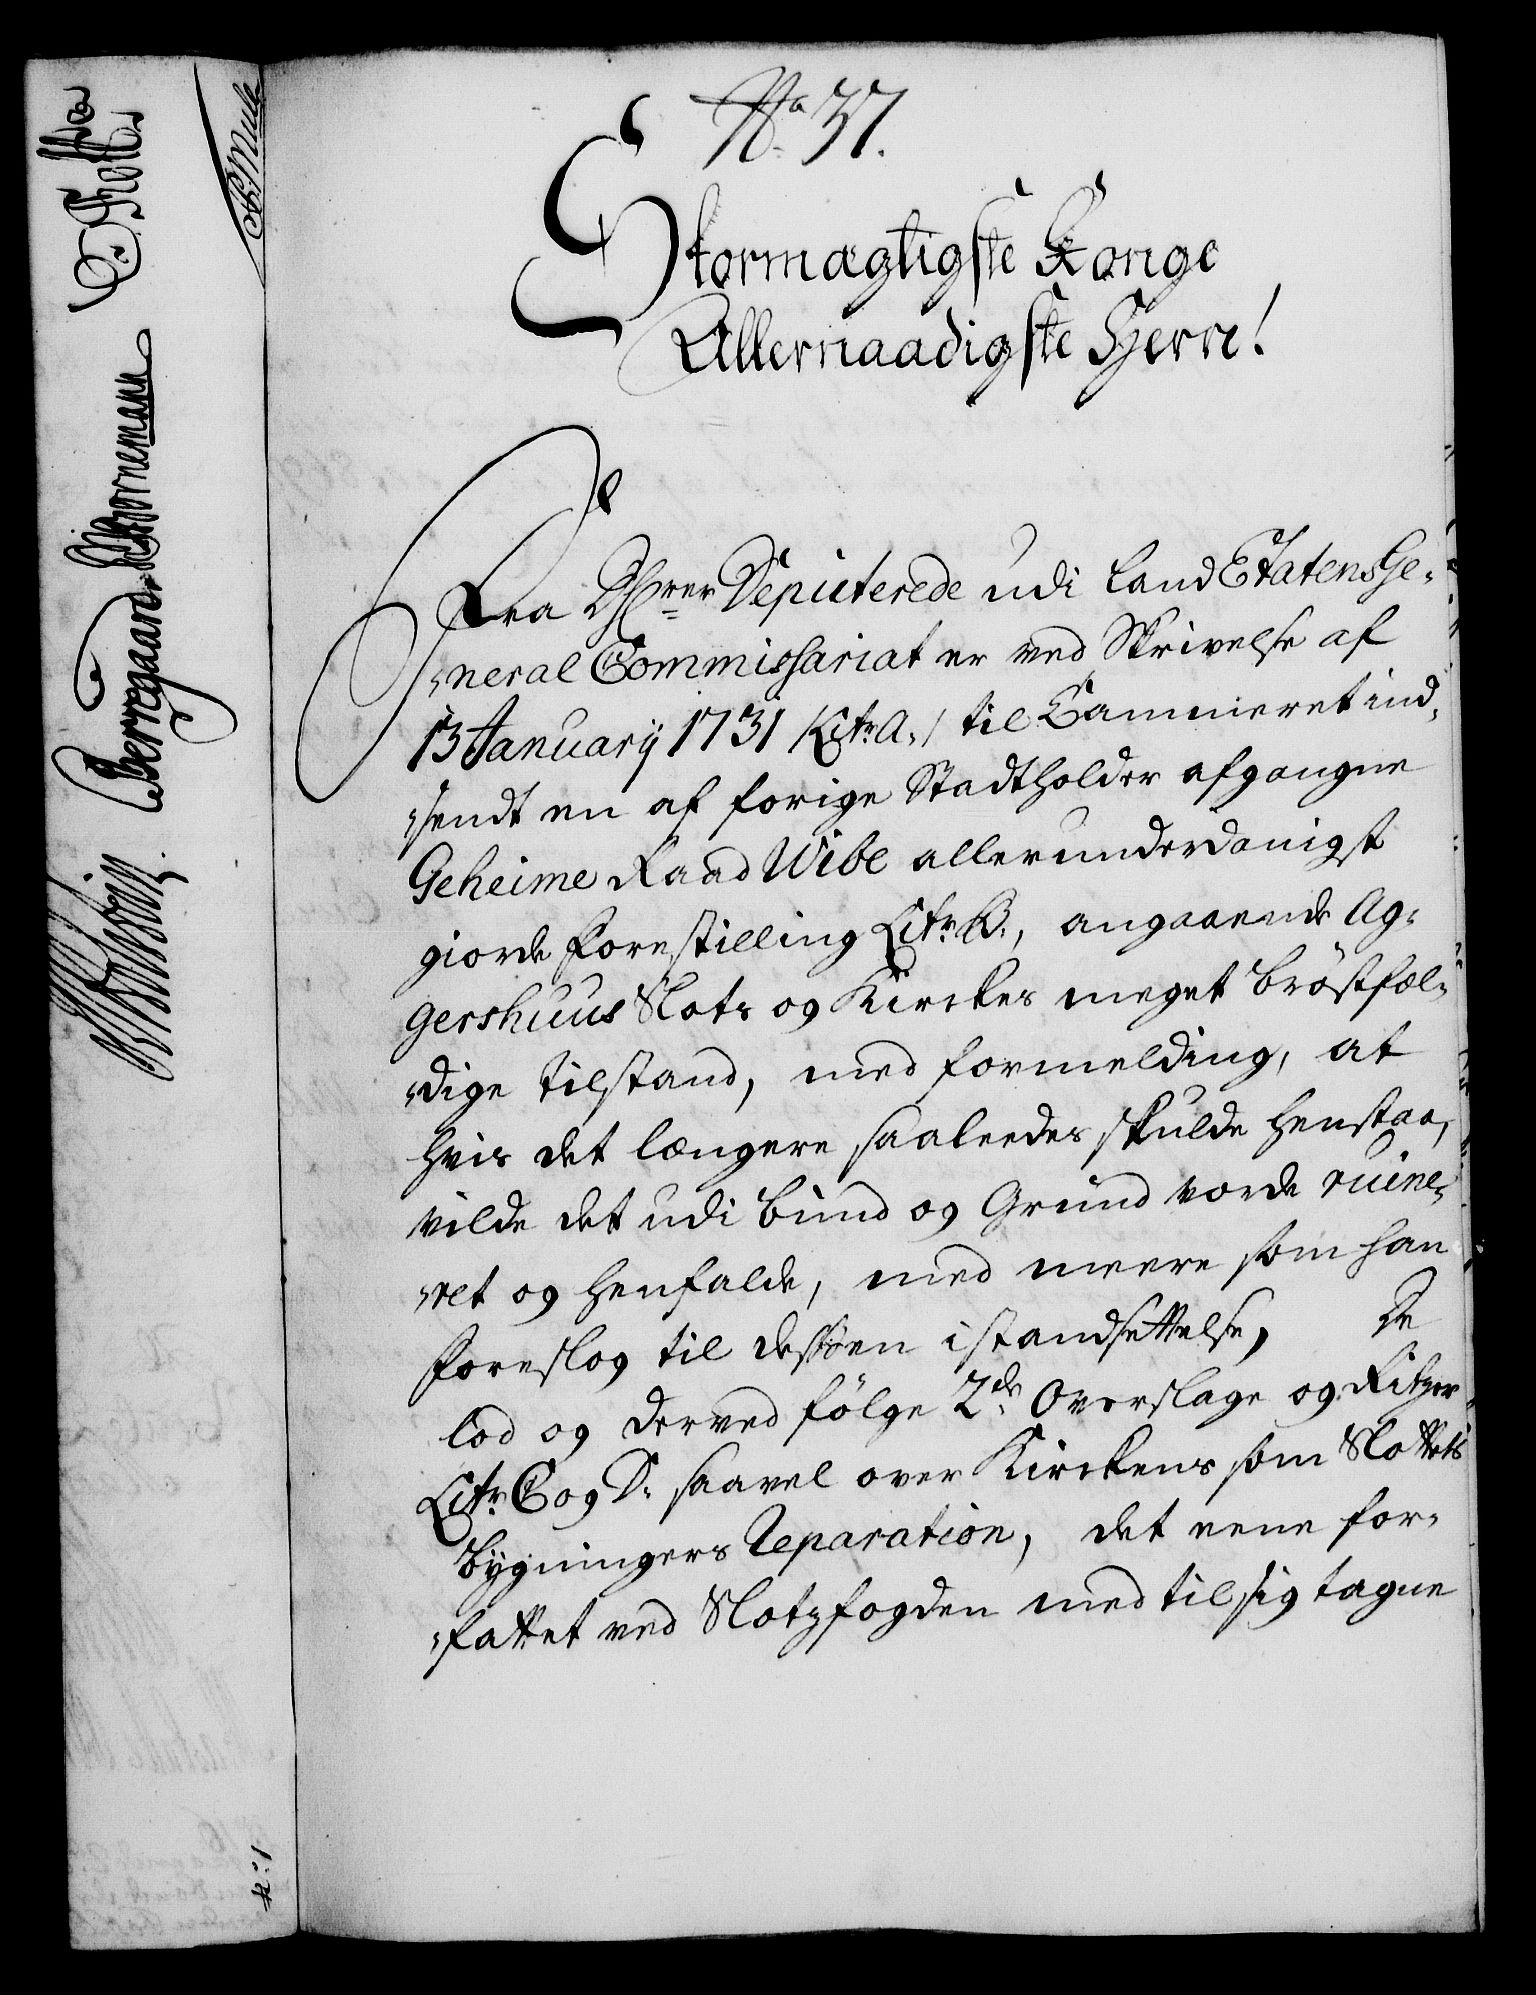 No 37.
Stormægtigste Konge
Allernaadigste Herre!
Fra DHrer Deputerede udi Land Etatens Ge-
neral Commissariat er ved Skrivelse af
13 January 1731 /Litr A./ til Cammeret ind-
sendt en af forige Stadtholder afgangne
Geheime Raad Wibe allerunderdanigst
giorde Forestilling Litr B., angaaende Ag-
gershuus Slots og Kirckes meget bröstfæl-
dige tilstand, med formelding, at
hvis det længere saaleedes skulde henstaa,
vilde det udi bund og Grund vorde ruine-
ret og henfalde, med meere som han
foreslog til dessen istandsettelse, De
lod og derved følge 2de Overslage og Ritzer
Litr C og D. saavel over Kirckens som Slottets
bygningers Reparation, det eene for-
fattet ved Slotzfogden med til sig tagne
Bornemann